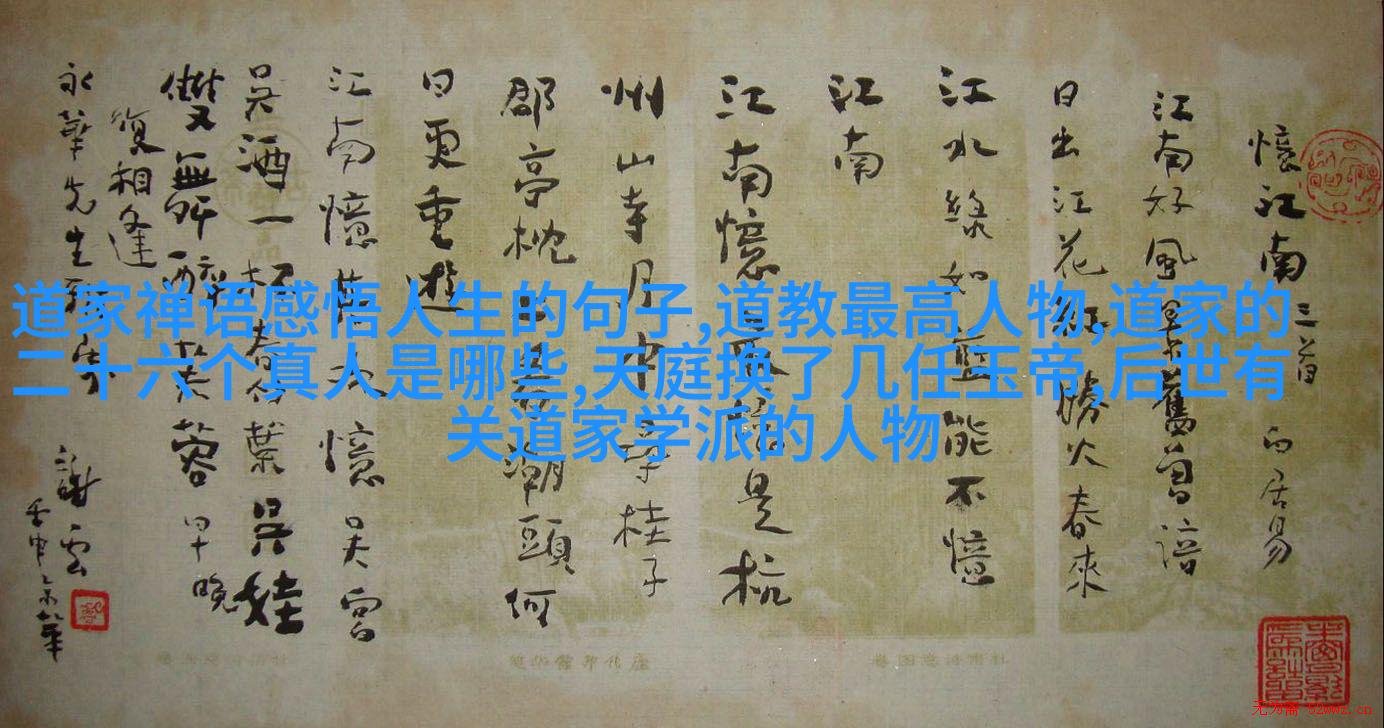 道家禅语感悟人生的句子,道教最高人物,道家的
二十六个真人是哪些,天庭换了几任玉帝,后世有
关道家学派的人物
憶江南三首 白居易
江南好風景舊曾諳
日出江花紅勝火春來
江水綠如藍能不憶
江南
江南憶最憶是杭
州山寺月中尋桂子
郡亭枕上看潮頭何
日更重遊
江南憶其次憶吳宮
吳酒一杯春竹葉吳娃
雙舞醉芙蓉早晚
復相逢
永華先生
謝雲
壬申
无为斋 52wwz.cn